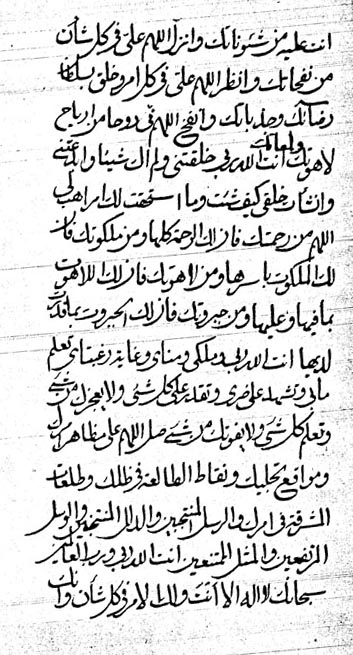 انت عليه من شئوناتك وانزل اللهم علىّ فى كل شأن
من نفحاتك وانظر اللهم علىّ فى كل امر وخلق بسلطان
رضائك وجذباتك وانفخ اللهم فىّ روحا من ارياح
لاهوتك انت الله ربى خلقتنى ولم اك شيئا وابدعتنى
وانشأت خلقى كيف شئت وما استحققت لك امراً هب لى
اللهم من رحمتك فان لك الرحمة كلها ومن ملكوتك فان
لك الملكوت باسرها ومن لاهوتك فان لك اللاهوت
بما فيها وعليها ومن جبروتك فان لك الجبروت بما قدرت
لديها انت الله ربى وملكى ومناى وغاية رغبتاى تعلم
مابى وتشهد على ضرى وتقدر على كل شئ ولا يعجزك من شئ
وتعلم كل شئ ولا يفوتك من شئ صل اللهم على مظاهر امرك
ومواقع تجليك ونقاط الطالعة فى ظلك وطلعات
المشرقة فى امرك والرسل المنتجبين والدلل المنتجبين والرسل
المرتفعين والمثل الممتنعين انت الله ربى ورب العالمين
سبحانك لا اله الا انت ولك الامر فى كل شأن وانك